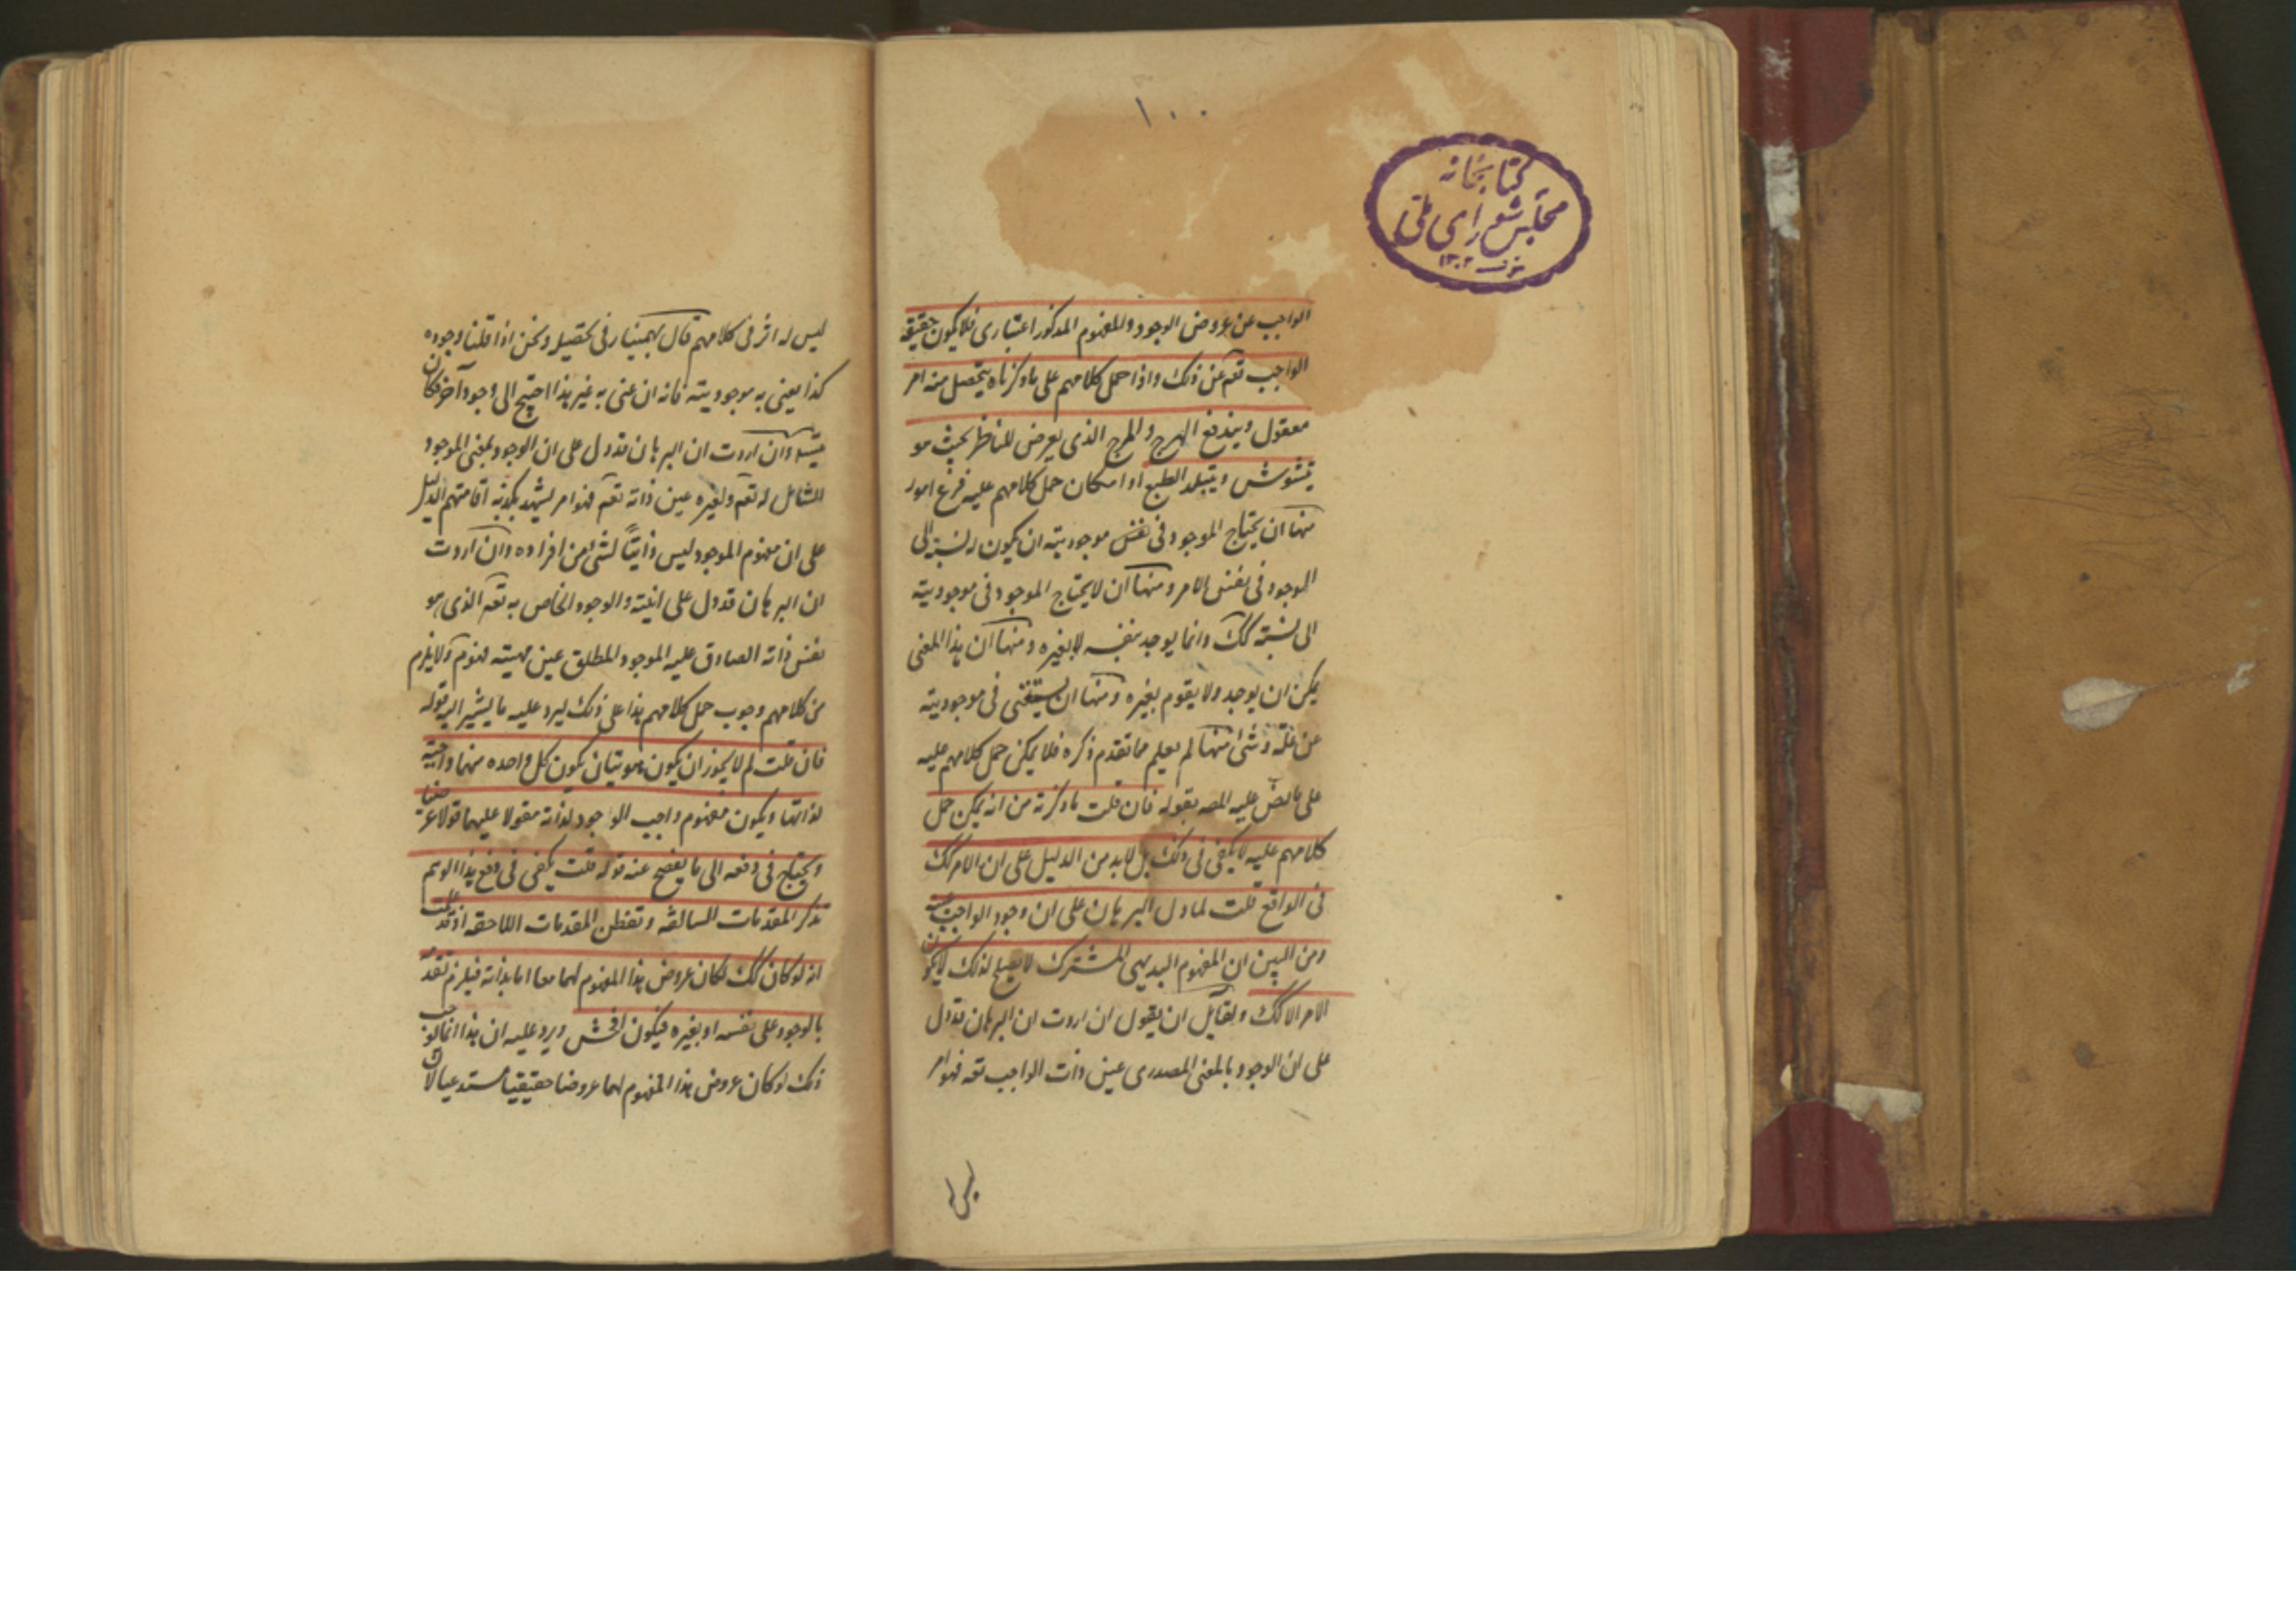 ١٠٠
کتابخانه
مجلس شورای ملی
١٣٠٢
الواجب عن عروض الوجود والمفهوم المذكور اعتباری فلا يكون حقيقة
الواجب تعه عن ذلك واذا حمل كلامهم على ما ذكرناه يتحصل منه امر
معقول ويندفع الهرج والمرج الذی يعرض للناظر بحيث
يتشوش ويتبلد الطبع او امكان حمل كلامهم عليه فرع امور
منها ان يحتاج الموجود فی نفس موجوديته ان يكون له نسبة الى
الوجود فی نفس الامر ومنها ان لا يحتاج الموجود فی موجوديته
الى نسبة كك وانما يوجد بنفسه لا بغيره ومنها ان هذا المعنى
يمكن ان يوجد ولا يقوم بغيره ومنها ان يستغنى فی موجوديته
عن علة وشئ منها لم يعلم مما تقدم ذكره فلا يمكن حمل كلامهم عليه
على ما نص عليه المصه بقوله فان قلت ما ذكرته من انه يمكن حمل
كلامهم عليه لا يكفى فی ذلك بل لابد من الدليل على ان الامر كك
فی الواقع قلت لما دل البرهان على ان وجود الواجب عينه
ومن البين ان المفهوم البديهی المشترك لا يصلح لذلك لا يكون
الامر الا كك ولقايل ان يقول ان اردت ان البرهان قد دل
على ان الوجود بالمعنى المصدری عين ذات الواجب تعه فهو امر
ليس له
ليس له اثر فی كلامهم قال بهمنيار فی تحصيله ونحن اذا قلنا وجوده
كذا يعنى به موجوديته فانه ان عنى به غير هذا احتيج الى وجود آخر فكان
يتسلل وان اردت ان البرهان قد دل على ان الوجود بمعنى الموجود
الشامل له تعه ولغيره عين ذاته تعه فهو امر يشهد بكذبه اقامتهم الدليل
على ان مفهوم الموجود ليس ذاتيًا لشئ من افراده وان اردت
ان البرهان قد دل على انيته والوجود الخاص به تعه الذی هو
نفس ذاته الصادق عليه الموجود المطلق عين مهيته فهو م ولا يلزم
من كلامهم وجوب حمل كلامهم هذا على ذلك ليرد عليه ما يشير اليه بقوله
فان قلت لم لا يجوز ان يكون هويتان يكون كل واحده منهما واجبة
لذاتها ويكون مفهوم واجب الوجود لذاته مقولا عليهما قولا عرضيا
ويحتاج فی دفعه الى ما يفصح عنه قوله قلت يكفى فی دفع هذا الوهم
تذكر المقدمات السالفه وتفطن المقدمات اللاحقه اذ قد علمت
انه لو كان كك لكان عروض هذا المفهوم لهما معا اما بذاته فيلزم تقدمه
بالوجود على نفسه او بغيره فيكون افحش ويرد عليه ان هذا انما
ذلك لو كان عروض هذا المفهوم لهما عروضا حقيقيا مستدعيا